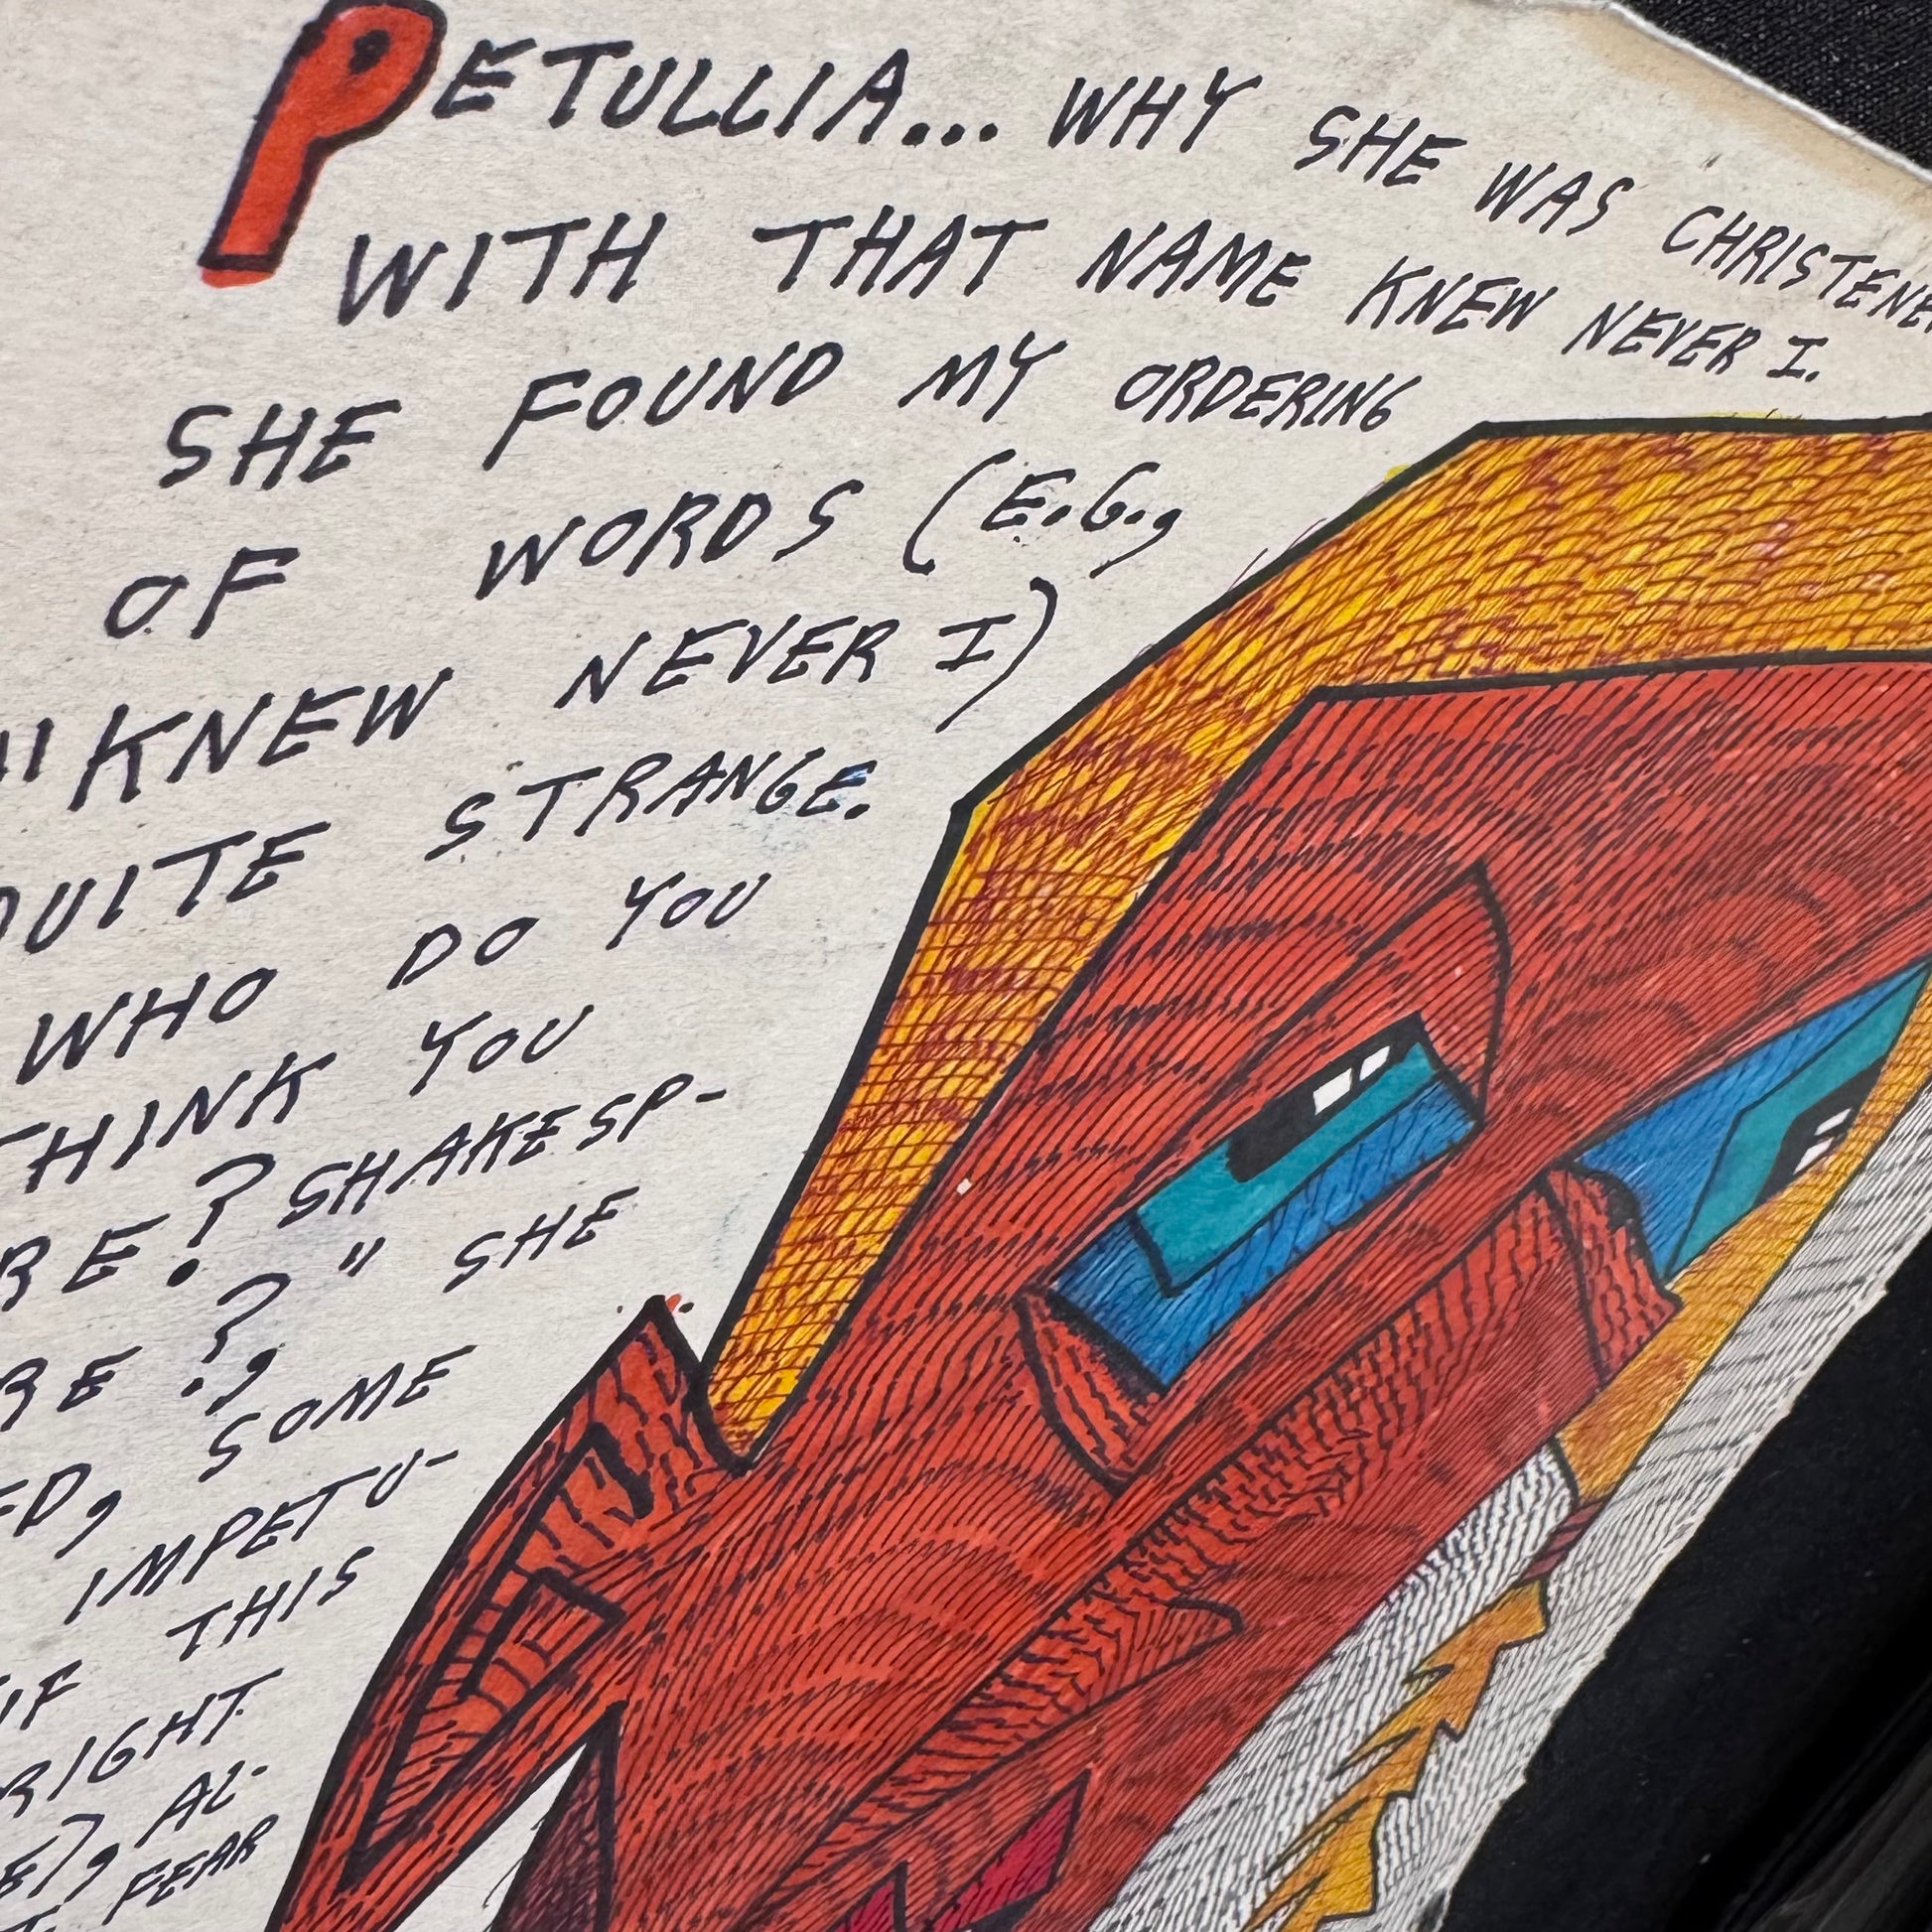 PETULLIA... WHY SHE WAS CHRISTENE
WITH THAT NAME KNEW NEVER I.
SHE FOUND MY ORDERING
OF WORDS (E.G.,
"KNEW NEVER I)
QUITE STRANGE.
WHO DO YOU
THINK YOU
RE? SHAKESP-
RE?," SHE
ED, SOME
IMPETU-
IF THIS
RIGHT
E], AL-
FEAR